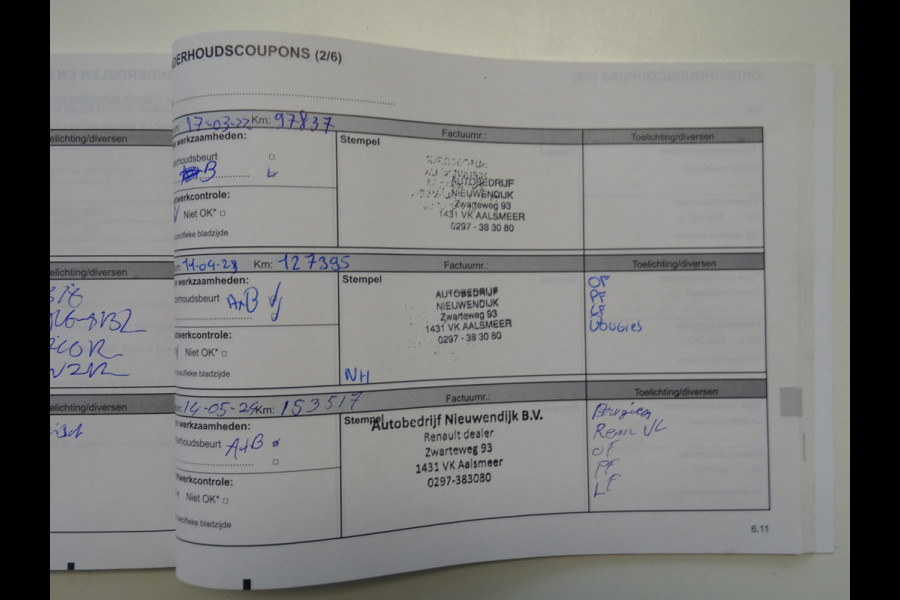 DERHOUDSCOUPONS (2/6)
17-03-22 Km: 97837
Factuurnr.:
Toelichting/diversen
werkzaamheden:
erhoudsbeurt
B
Stempel
AUTOBEDRIJF
NIEUWENDIJK
Zwarteweg 93
1431 VK AALSMEER
0297 - 38 30 80
twerkcontrole:
Niet OK*
specifieke bladzijde
elichting/diversen
Km: 127395
Factuurnr.:
Toelichting/diversen
werkzaamheden:
erhoudsbeurt A+B
Stempel
AUTOBEDRIJF
NIEUWENDIJK
Zwarteweg 93
1431 VK AALSMEER
0297 - 38 30 80
NH
OF
PF
LF
bougies
twerkcontrole:
Niet OK*
specifieke bladzijde
elichting/diversen
14-05-24 Km: 153517
Factuurnr.:
Toelichting/diversen
werkzaamheden:
erhoudsbeurt A+B
Stempel
Autobedrijf Nieuwendijk B.V.
Renault dealer
Zwarteweg 93
1431 VK Aalsmeer
0297-383080
Bougies
Rem VL
OF
PF
LF
twerkcontrole:
Niet OK*
specifieke bladzijde
elichting/diversen
6.11